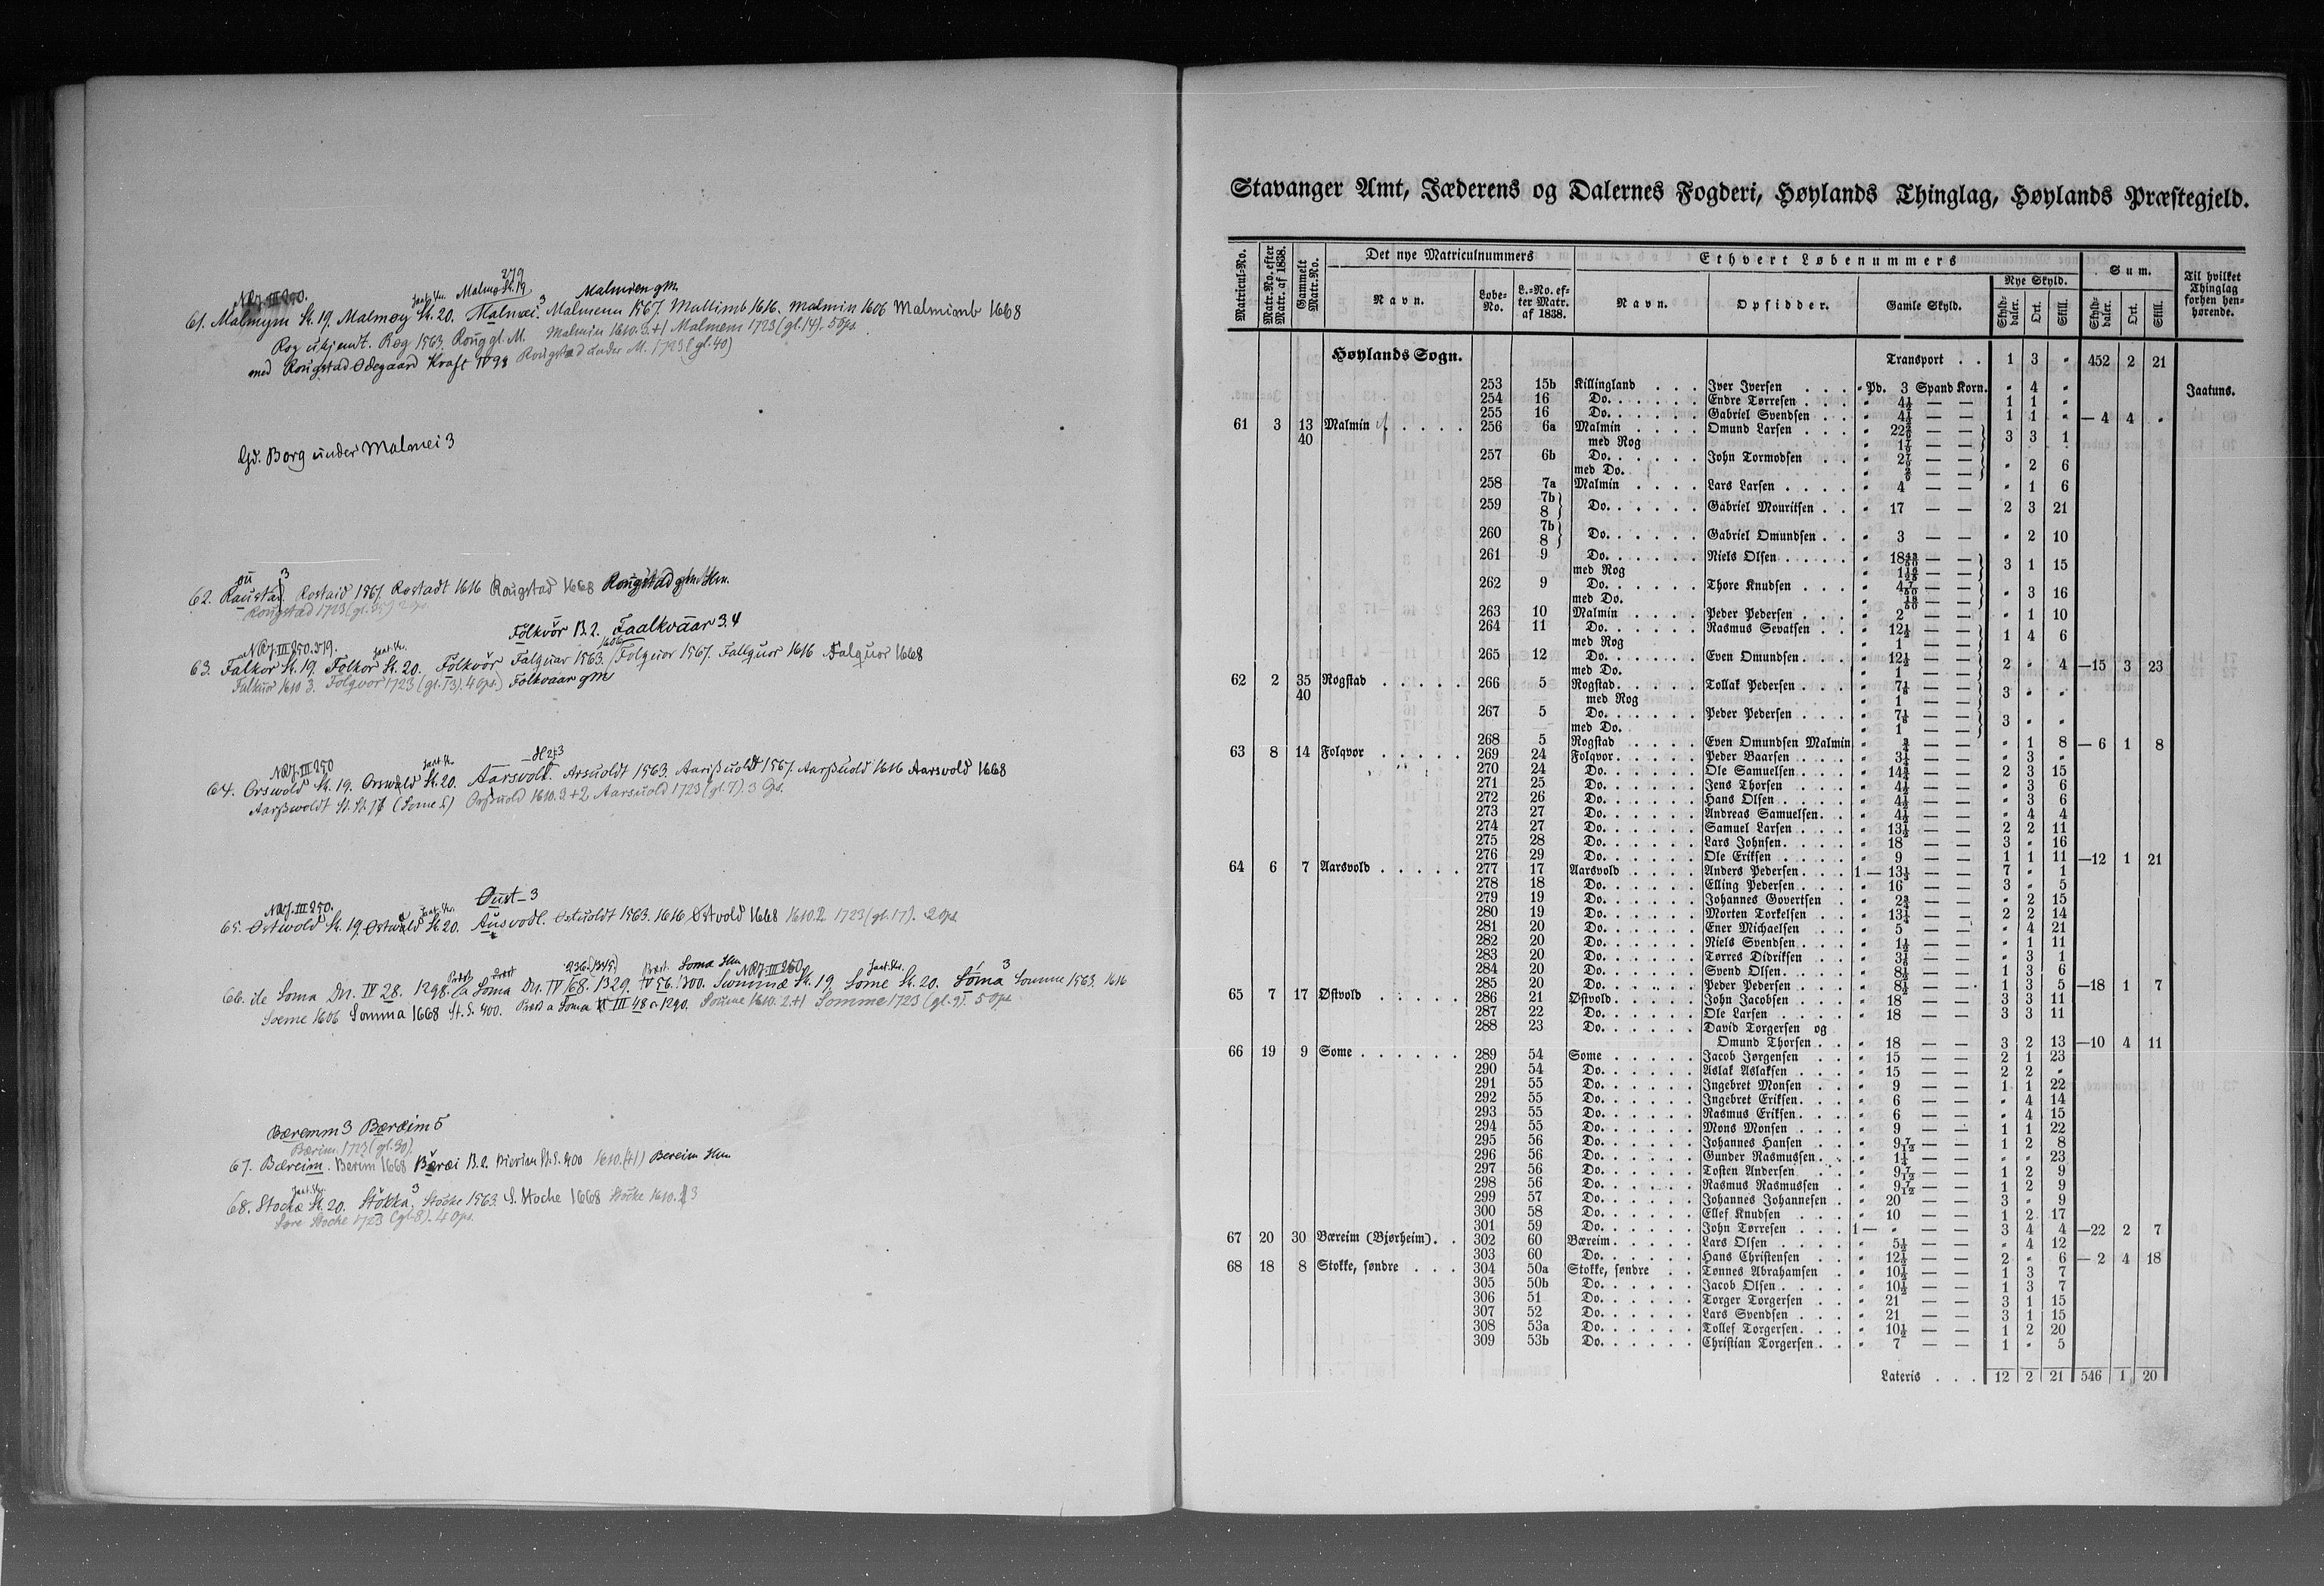 N.RJ. III 250.
279
Malmø St. 19
Jaat. Skr.
Malmien gm.
61. Malmym St. 19. Malmøy St. 20. Malmæi. 3 Malmenn 1567. Mallimb 1616. Malmin 1606 Malmiomb 1668
Rog ukjendt. Røg 1563. Roug gl. M. Malmin 1610. 3.+1 Malmem 1723 (gl. 14). 5 Ops
med Rougstad Ødegaard Kraft IV 98 Rougstad under M. 1723 (gl. 40)
Gd. Borg under Malmei 3
62. Raustad 3 Rostaid 1567 Rostadt 1616 Rougstad 1668 Rougstad gm. Hm.
Rougstad 1723 (gl. 35) 2 Ops
Fölkvör B. 2. Faalkvaar 3.4
N.RJ. III 250. 519. Jaat. Skr.
63. Falkor St. 19. Folkor St. 20. Folkvör Falquar 1563. 1606 Folquor 1567. Fallquor 1616 Falquor 1668
Falkuor 1610 3. Folqvor 1723 (gl. 13). 4 Ops.) Folkvaar gm
N.RJ. III 250 Jaat. Skr.
64. Orswold St. 19. Orswald St. 20. Aarsvoll. Arsuoldt 1563. Aarißuoldt 1567. Aarßuold 1616 Aarsvold 1668
Aarßwoldt (Some S.) Orßuold 1610. 3+2 Aarsuold 1723 (gl. 7). 3 Ops.
Øust_3
N.RJ. III 250. Jaat. Skr.
65. Ostwold St. 19. Ostwald St. 20. Ausvodl. Østuoldt 1563. 1616 Østvold 1668 1610. 2 1723 (gl. 17). 2 Ops
66. ile Soma Dn. IV 28. 1298. a Soma Dn. IV 168. 1329. IV 236. (1345) IV 56. 1300. Soma Hm N.RJ. III 250. Sommæ St. 19. Some St. 20. Sóma 3 Somme 1563. 1616
Soeme 1606 Somma 1668 St. S. 400. a Soma III 48 c. 1290. Somme 1610. 2+1 Somme 1723 (gl. 9). 5 Ops
Bæremm 3 Bæræim 5
Bærim 1723 (gl. 30).
67. Bæreim. Berim 1668 Bæræi B. 2. St. S. 400 1610. (+1) Bereim Hm
68. Stockæ St. 20. Støkka 3. Stocke 1563. S. Stoche 1668 Stocke 1610. 3
Søre Stoche 1723 (gl. 8). 4 Ops.
Stavanger Amt, Jæderens og Dalernes Fogderi, Høylands Thinglag, Høylands Præstegjeld.
Matricul-No. | Matr.-No. efter Matr. af 1838. | Gammelt Matr.-No. | Det nye Matriculnummers | Ethvert Løbenummers | Sum. | Til hvilket Thinglag forhen henhørende.
Navn. | Løbe-No. | L.-No. efter Matr. af 1838. | Navn. | Opsidder. | Gamle Skyld. | Nye Skyld. Skylddaler. Ort. Skill. | Skylddaler. Ort. Skill.
Høylands Sogn. Transport . . 1 3 " 452 2 21
253 15b Killingland . . . Iver Iversen . . . " Pd. 3 Spand Korn. " 4 " Jaatuns.
254 16 Do. . . . . . Endre Tørresen . . . " 4½ — — 1 1 "
255 16 Do. . . . . . Gabriel Svendsen . . . " 4½ — — 1 1 " — 4 4 "
61 3 13 Malmin . . . . . 256 6a Malmin . . . . Omund Larsen . . . " 22 2/9 — — } 3 3 1
40 med Rog " 1 7/9 — — }
257 6b Do. . . . . . John Tormodsen . . " 2 7/9 — — } " 2 6
med Do. " 2/9 — — }
258 7a Malmin . . . . Lars Larsen . . . . " 4 — — " 1 6
259 7b 8 } Do. . . . . . Gabriel Mouritsen . . " 17 — — 2 3 21
260 7b 8 } Do. . . . . . Gabriel Omundsen . . " 3 — — " 2 10
261 9 Do. . . . . . Niels Olsen . . . . . " 18 43/50 — — } 3 1 15
med Rog " 1 16/25 — — }
262 9 Do. . . . . . Thore Knudsen . . . " 4 7/50 — — } " 3 16
med Do. " 18/50 — — }
263 10 Malmin . . . . Peder Pedersen . . . " 2 — — " 1 10
264 11 Do. . . . . . Rasmus Sevatsen . . " 12½ — — } 1 4 6
med Rog " 1 — — }
265 12 Do. . . . . . Even Omundsen . . . " 12½ — — } 2 " 4 —15 3 23
med Do. " 1 — — }
62 2 35 Rogstad . . . . . 266 5 Rogstad . . . . . Tollak Pedersen . . . " 7⅛ — — } 3 " "
40 med Rog " 1 — — }
267 5 Do. . . . . . Peder Pedersen . . . " 7⅛ — — } 3 " "
med Do. " 1 — — }
268 5 Rogstad . . . . Even Omundsen Malmin " ¾ — — " 1 8 — 6 1 8
63 8 14 Folqvor . . . . . 269 24 Folqvor . . . . . Peder Baarsen . . . " 3¼ — — " 3 "
270 24 Do. . . . . . Ole Samuelsen . . . " 14¾ — — 2 3 15
271 25 Do. . . . . . Jens Thorsen . . . . " 4½ — — " 3 6
272 26 Do. . . . . . Hans Olsen . . . . . " 4½ — — " 3 6
273 27 Do. . . . . . Andreas Samuelsen . . " 4½ — — " 4 4
274 27 Do. . . . . . Samuel Larsen . . . " 13½ — — 2 2 11
275 28 Do. . . . . . Lars Johnsen . . . . " 18 — — 3 " 16
276 29 Do. . . . . . Ole Eriksen . . . . . " 9 — — 1 1 11 —12 1 21
64 6 7 Aarsvold . . . . . 277 17 Aarsvold . . . . . Anders Pedersen . . . 1 — 13½ — — 7 " 1
278 18 Do. . . . . . Elling Pedersen . . . " 16 — — 3 " 5
279 19 Do. . . . . . Johannes Govertsen . " 2¾ — — " 2 15
280 19 Do. . . . . . Morten Torkelsen . . " 13¼ — — 2 2 14
281 20 Do. . . . . . Ener Michaelsen . . " 5 — — " 4 21
282 20 Do. . . . . . Niels Svendsen . . . " 1½ — — " 1 11
283 20 Do. . . . . . Tørres Didriksen . . " 3⅙ — — " 3 1
284 20 Do. . . . . . Svend Olsen . . . . " 8½ — — 1 3 6
285 20 Do. . . . . . Peder Pedersen . . . " 8½ — — 1 3 5 —18 1 7
65 7 17 Østvold . . . . . 286 21 Østvold . . . . . John Jacobsen . . . " 18 — — 3 3 11
287 22 Do. . . . . . Ole Larsen . . . . . " 18 — — 3 3 11
288 23 Do. . . . . . David Torgersen og
Omund Thorsen . . " 18 — — 3 2 13 —10 4 11
66 19 9 Some . . . . . . 289 54 Some . . . . . Jacob Jørgensen . . " 15 — — 2 1 23
290 54 Do. . . . . . Aslak Aslaksen . . . " 15 — — 2 2 "
291 55 Do. . . . . . Ingebret Monsen . . " 9 — — 1 1 22
292 55 Do. . . . . . Ingebret Eriksen . . . " 6 — — " 4 14
293 55 Do. . . . . . Rasmus Eriksen . . . " 6 — — " 4 15
294 55 Do. . . . . . Mons Monsen . . . " 9 — — 1 1 22
295 56 Do. . . . . . Johannes Hansen . . " 9 7/12 — — 1 2 8
296 56 Do. . . . . . Gunder Rasmussen . . " 1¼ — — " " 23
297 56 Do. . . . . . Tosten Andersen . . " 9 7/12 — — 1 2 9
298 56 Do. . . . . . Rasmus Rasmussen . . " 9 7/12 — — 1 2 9
299 57 Do. . . . . . Johannes Johannesen . " 20 — — 3 " 9
300 58 Do. . . . . . Ellef Knudsen . . . " 10 — — 1 2 17
301 59 Do. . . . . . John Tørresen . . . 1 — " — — 3 4 4 —22 2 7
67 20 30 Bæreim (Bjørheim) . . 302 60 Bæreim . . . . . Lars Olsen . . . . . " 5½ — — " 4 12
303 60 Do. . . . . . Hans Christensen . . " 12½ — — 2 " 6 — 2 4 18
68 18 8 Stokke, søndre . . . 304 50a Stokke, søndre . . Tønnes Abrahamsen . " 10½ — — 1 3 7
305 50b Do. . . . . . Jacob Olsen . . . . " 10½ — — 1 3 7
306 51 Do. . . . . . Torger Torgersen . . " 21 — — 3 1 15
307 52 Do. . . . . . Lars Svendsen . . . " 21 — — 3 1 15
308 53a Do. . . . . . Tollef Torgersen . . . " 10½ — — 1 2 20
309 53b Do. . . . . . Christian Torgersen . . " 7 — — 1 " 5
Lateris . . . 12 2 21 546 1 20